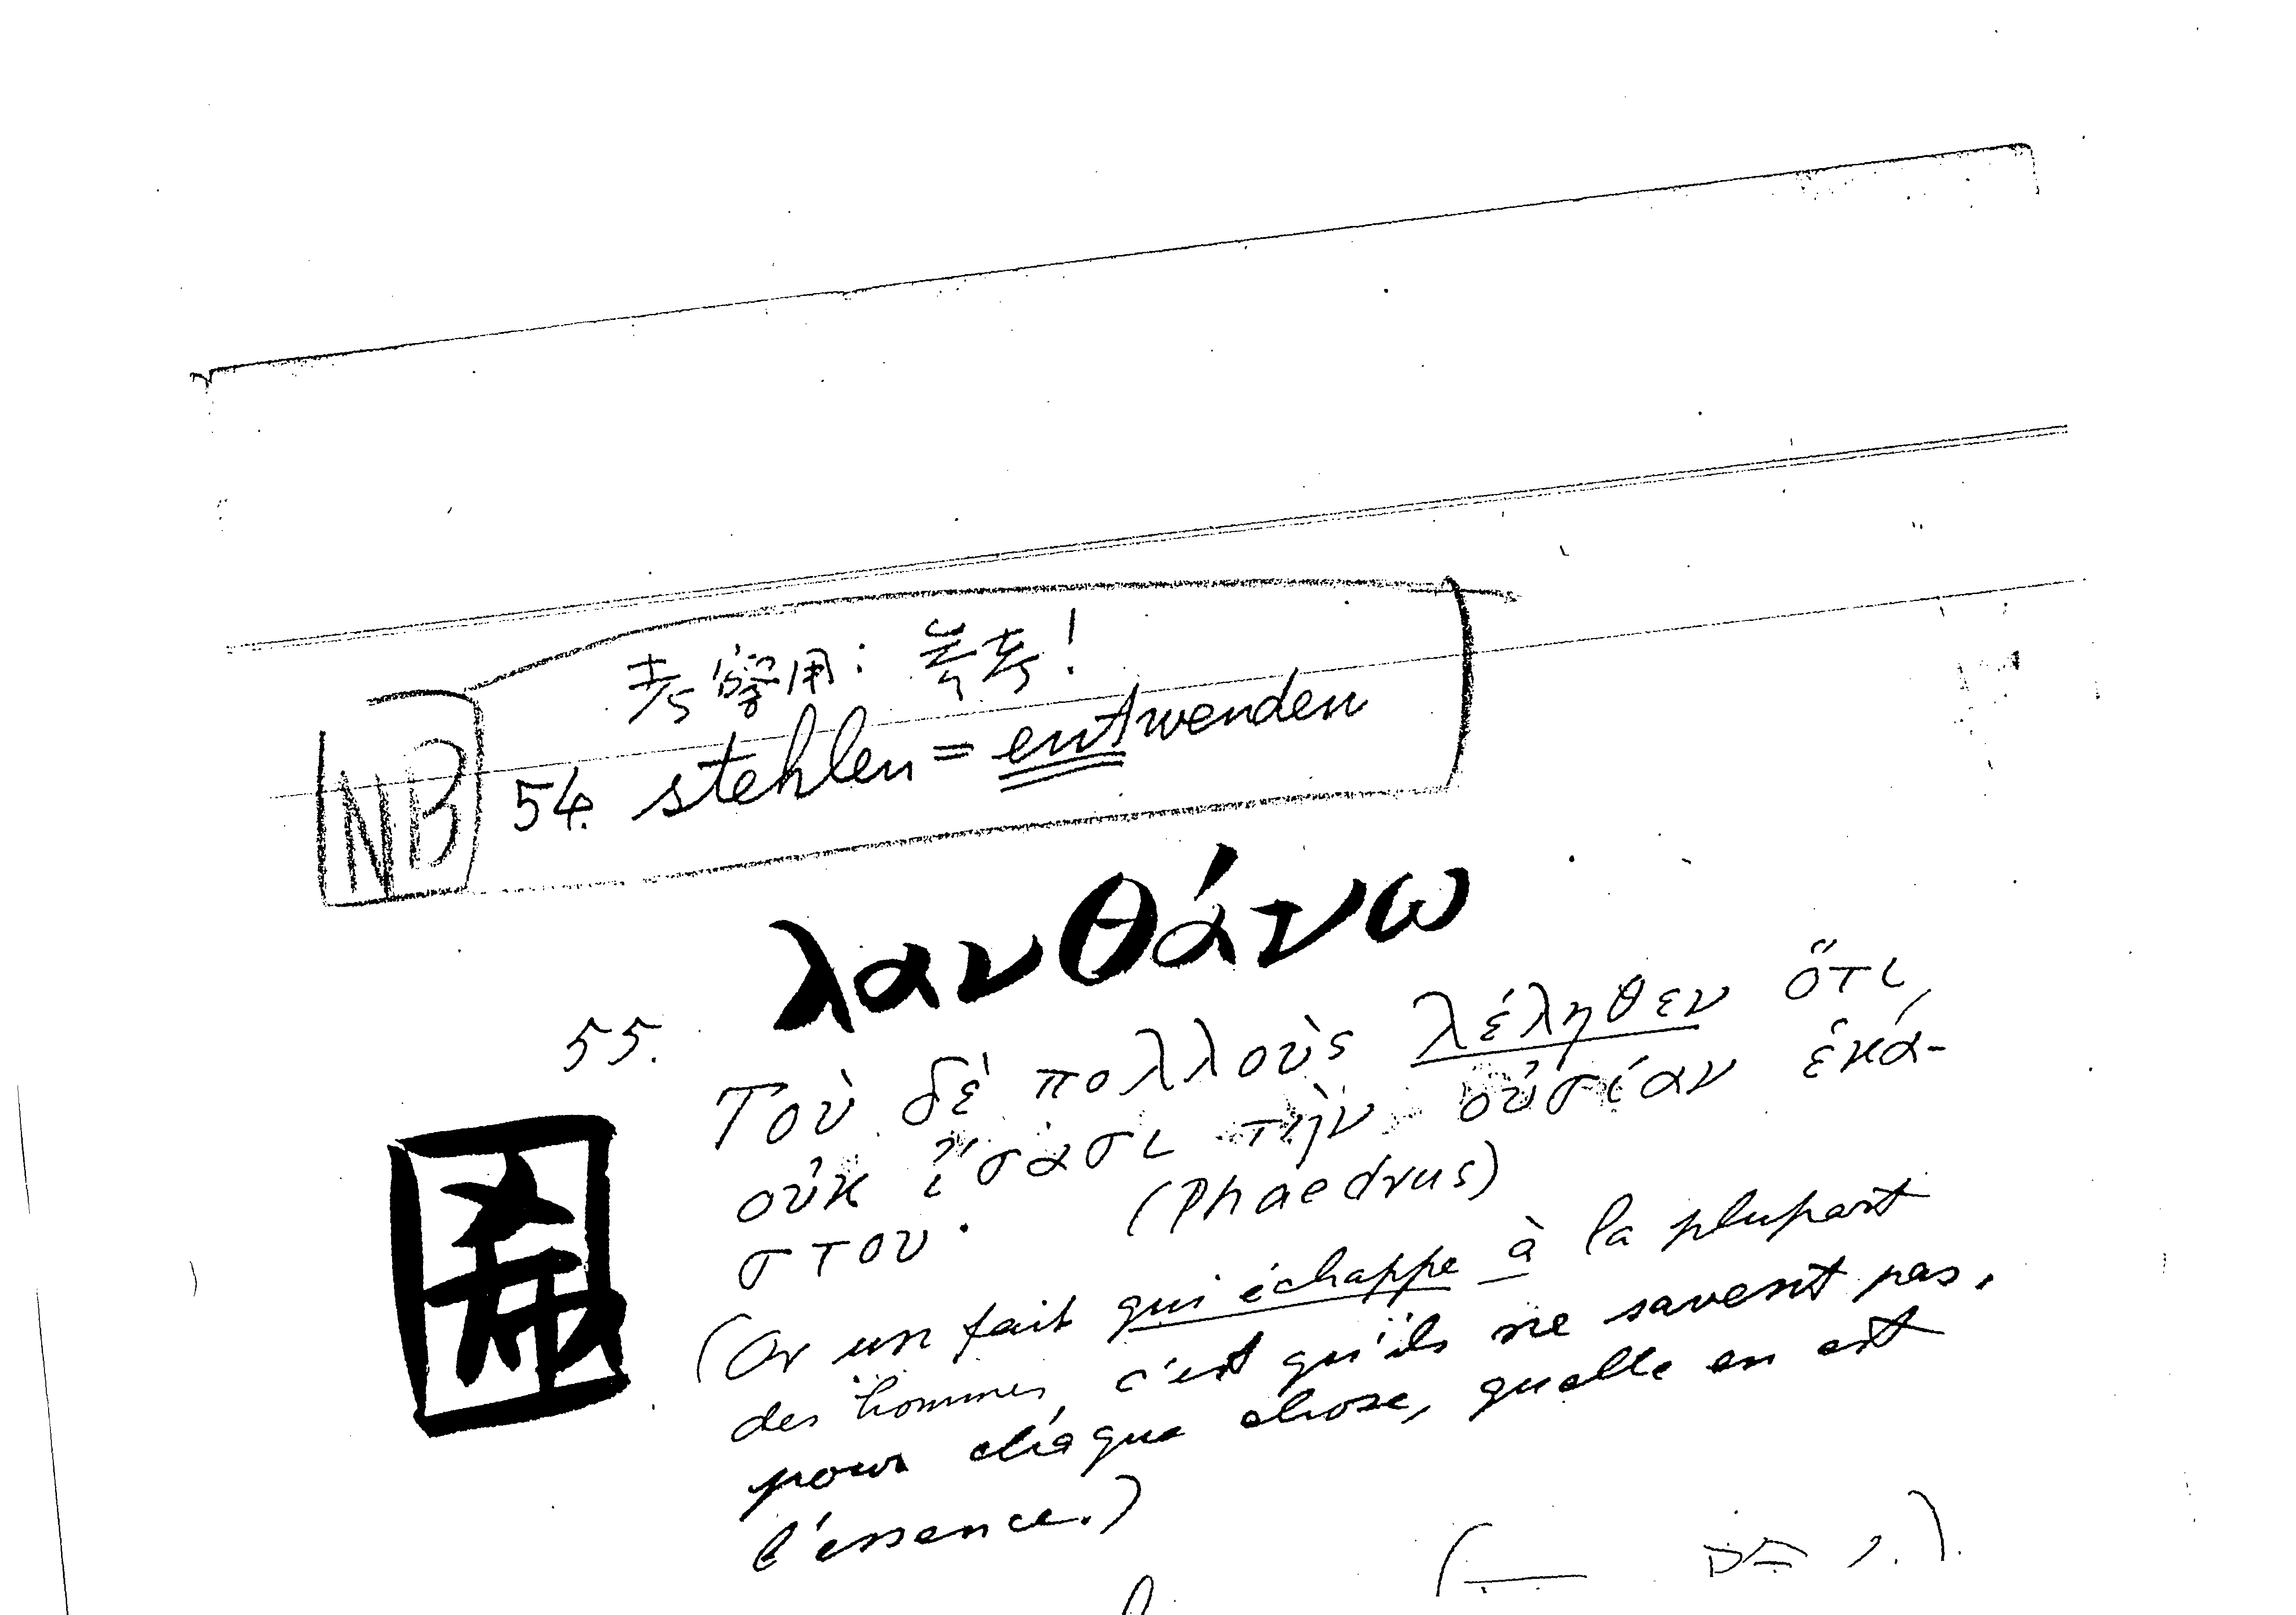 考留用: 養考!
NB 54. stehlen = entwenden
λανθάνω
55.
Τοὺ δὲ πολλοὺς λέληθεν ὅτι
οὐκ ἴσασι τὴν οὐσίαν ἑκά-
στου. (Phaedrus)
希
(Or un fait qui échappe à la plupart
des hommes, c'est qu'ils ne savent pas,
pour chaque chose, quelle en est
l'essence.)